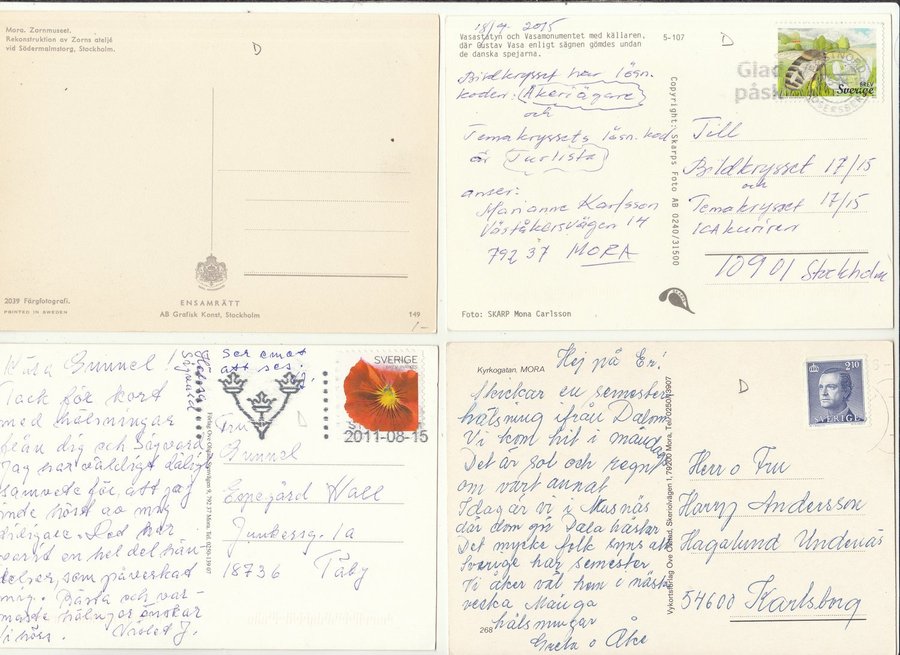 Mora. Zornmuseet.
Rekonstruktion av Zorns ateljé
vid Södermalmstorg, Stockholm.
D
2039 Färgfotografi.
PRINTED IN SWEDEN
ENSAMRÄTT
AB Grafisk Konst, Stockholm
149
1-
18/4 2015
Vasastatyn och Vasamonumentet med källaren,
där Gustav Vasa enligt sägnen gömdes undan
de danska spejarna.
5-107
D
Bildkrysset har lösn.
koden: Åkeriägare
och
Temakryssets lösn. kod
är Turlista
anser:
Marianne Karlsson
Våståkersvägen 14
792 37 MORA
Foto: SKARP Mona Carlsson
Copyright: Skarps Foto AB 0240/31500
Glad
påsk
BREV
Sverige
Till
Bildkrysset 17/15
och
Temakrysset 17/15
ICAkuriren
10901 Stockholm
Kära Gunnel!
Tack för kort
med hälsningar
från dig och Sigvard
Jag har väldigt dåligt
samvete för att jag
inte hört av mig
tidigare. Det har
varit en hel del hän
delser, som påverkat
mig. Bästa och var-
maste hälsningar önskar
Vi hörs. Violet J.
Hälsa
Sigvard
ser emot
att ses.
SVERIGE
2011-08-15
Fru
Gunnel
Eppegård Wall
Junkersg. 1a
18736 Täby
Kyrkogatan, MORA
Hej på Er!
Skickar en semester
hälsning ifrån Dalarna
Vi kom hit i måndags
Det är sol och regn
om vart annat
Idag är vi i Nusnäs
där dom gör Dala hästar.
Det mycke folk syns att
Sverige har semester.
Vi åker väl hem i nästa
vecka Många
hälsningar
Greta o Åke
268
Vykortsförlag Ove Öhlund, Skeriolvägen 1, 79200 Mora, Tel 0250/13907
D
2.10
SVERIGE
Herr o Fru
Harry Andersson
Hagalund Undenäs
54600 Karlsborg